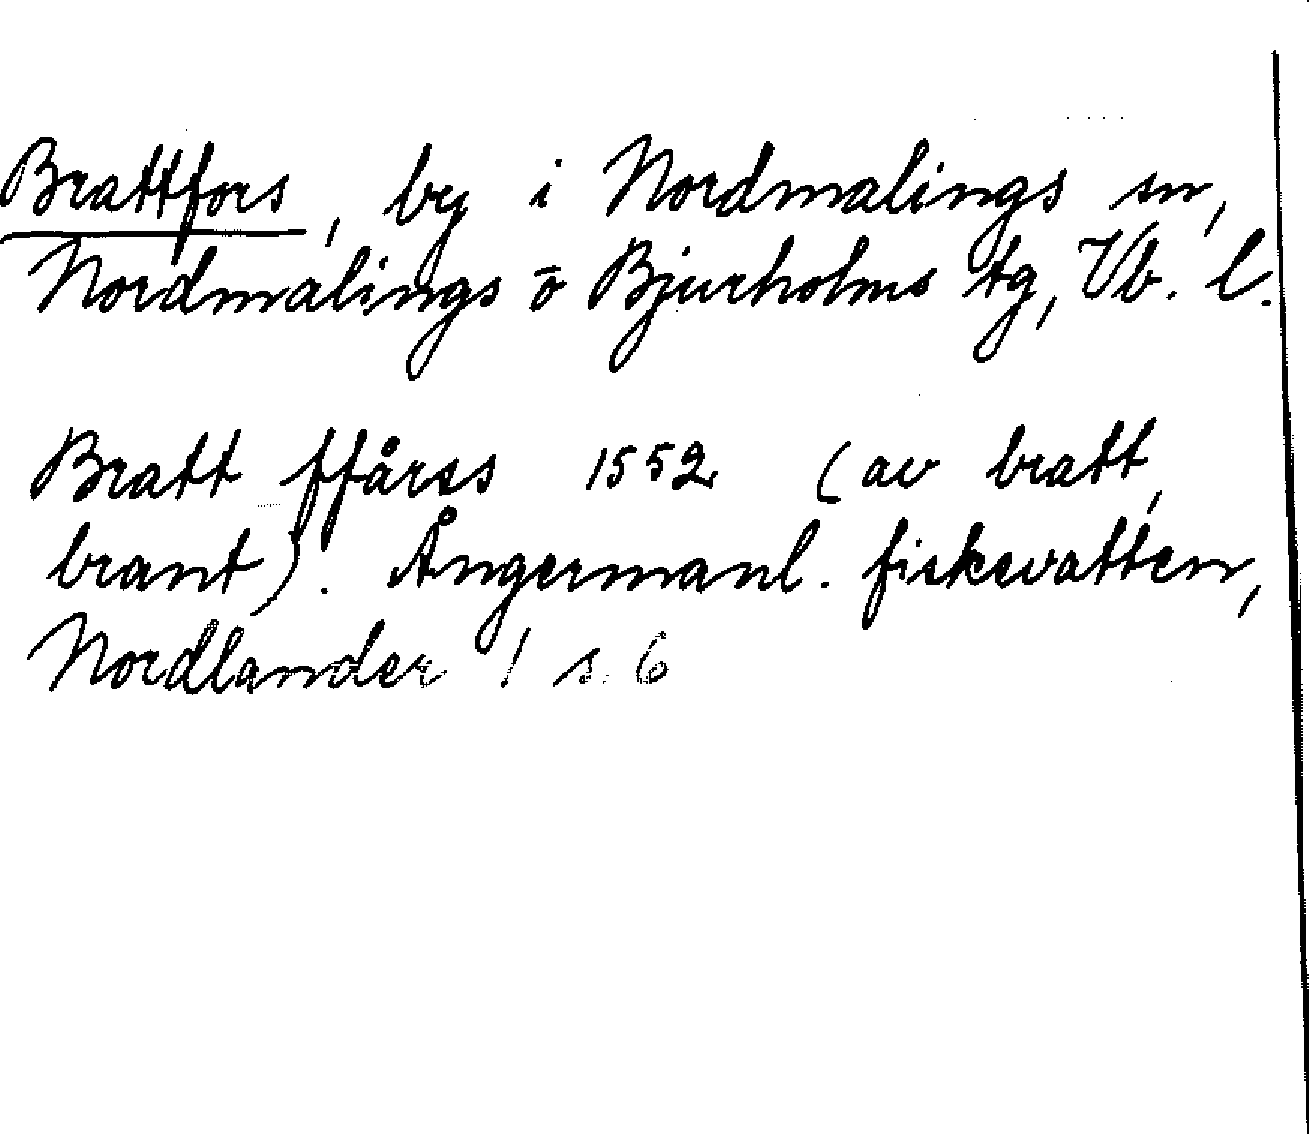 Brattfors, by i Nordmalings sn,
Nordmalings o Bjurholms tg, Vb. l.
Bratt ffårss 1552 (av bratt,
brant). Ångermanl. fiskevatten,
Nordlander 1 s. 6